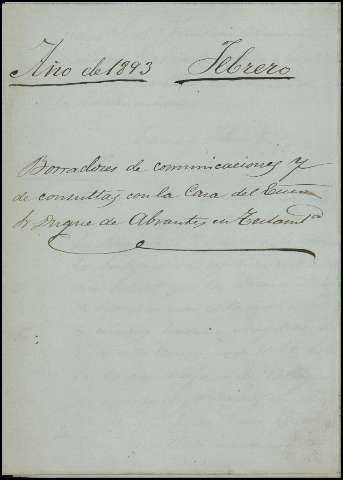 Año de 1893 Febrero
Borradores de comunicaciones y
de consultas con la Casa del
Duque de Abrantes en